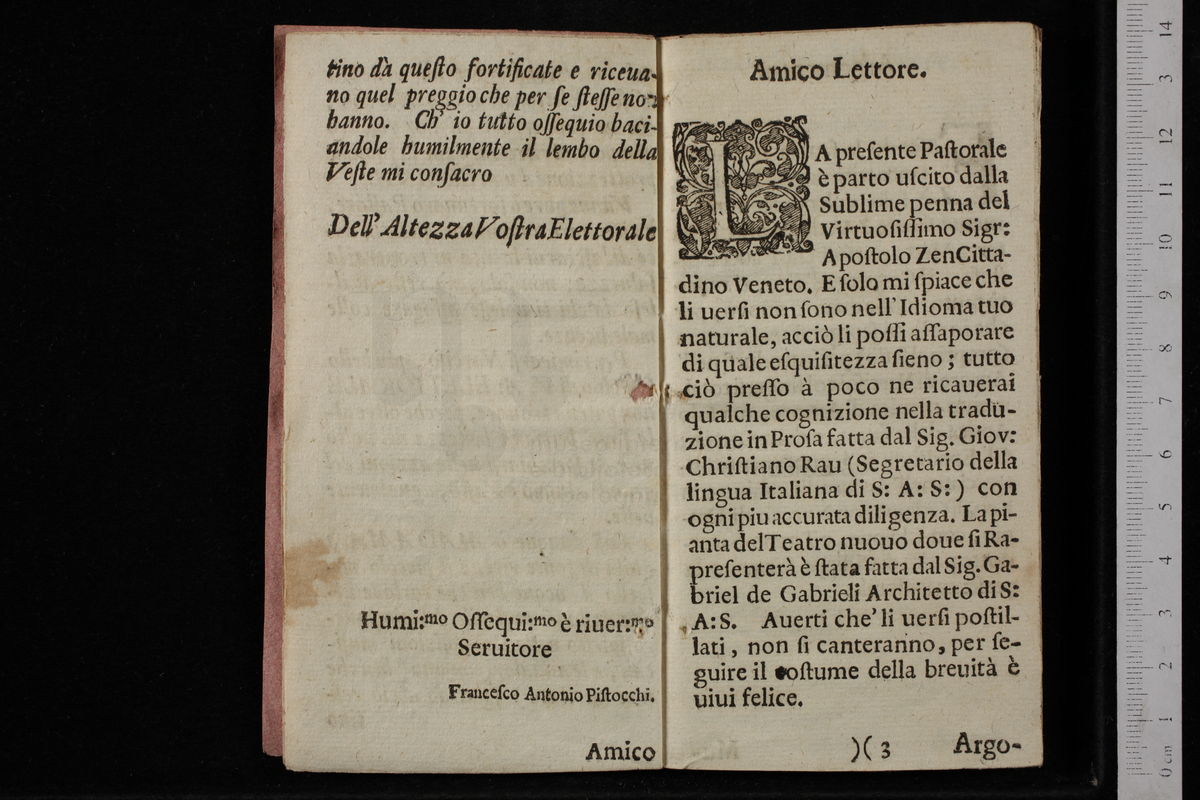 tino da queſto fortificate e riceua-
no quel preggio che per ſe ſteſſe non
hanno. Ch' io tutto oſſequio baci-
andole humilmente il lembo della
Veſte mi conſacro
Dell' Altezza Voſtra Elettorale
Humi:mo Oſſequi:mo è riuer:mo
Seruitore
Franceſco Antonio Piſtocchi.
Amico
Amico Lettore.
LA preſente Paſtorale
è parto uſcito dalla
Sublime penna del
Virtuoſiſſimo Sigr:
Apoſtolo Zen Citta-
dino Veneto. E ſolo mi ſpiace che
li uerſi non ſono nell' Idioma tuo
naturale, acciò li poſſi aſſaporare
di quale eſquiſitezza ſieno ; tutto
ciò preſſo à poco ne ricauerai
qualche cognizione nella tradu-
zione in Proſa fatta dal Sig. Giov:
Chriſtiano Rau (Segretario della
lingua Italiana di S: A: S: ) con
ogni piu accurata diligenza. La pi-
anta del Teatro nuouo doue ſi Ra-
preſenterà è ſtata fatta dal Sig. Ga-
briel de Gabrieli Architetto di S:
A: S. Auerti che' li uerſi poſtil-
lati , non ſi canteranno, per ſe-
guire il coſtume della breuità è
uiui felice.
)( 3
Argo-
0 cm 1 2 3 4 5 6 7 8 9 10 11 12 3 14